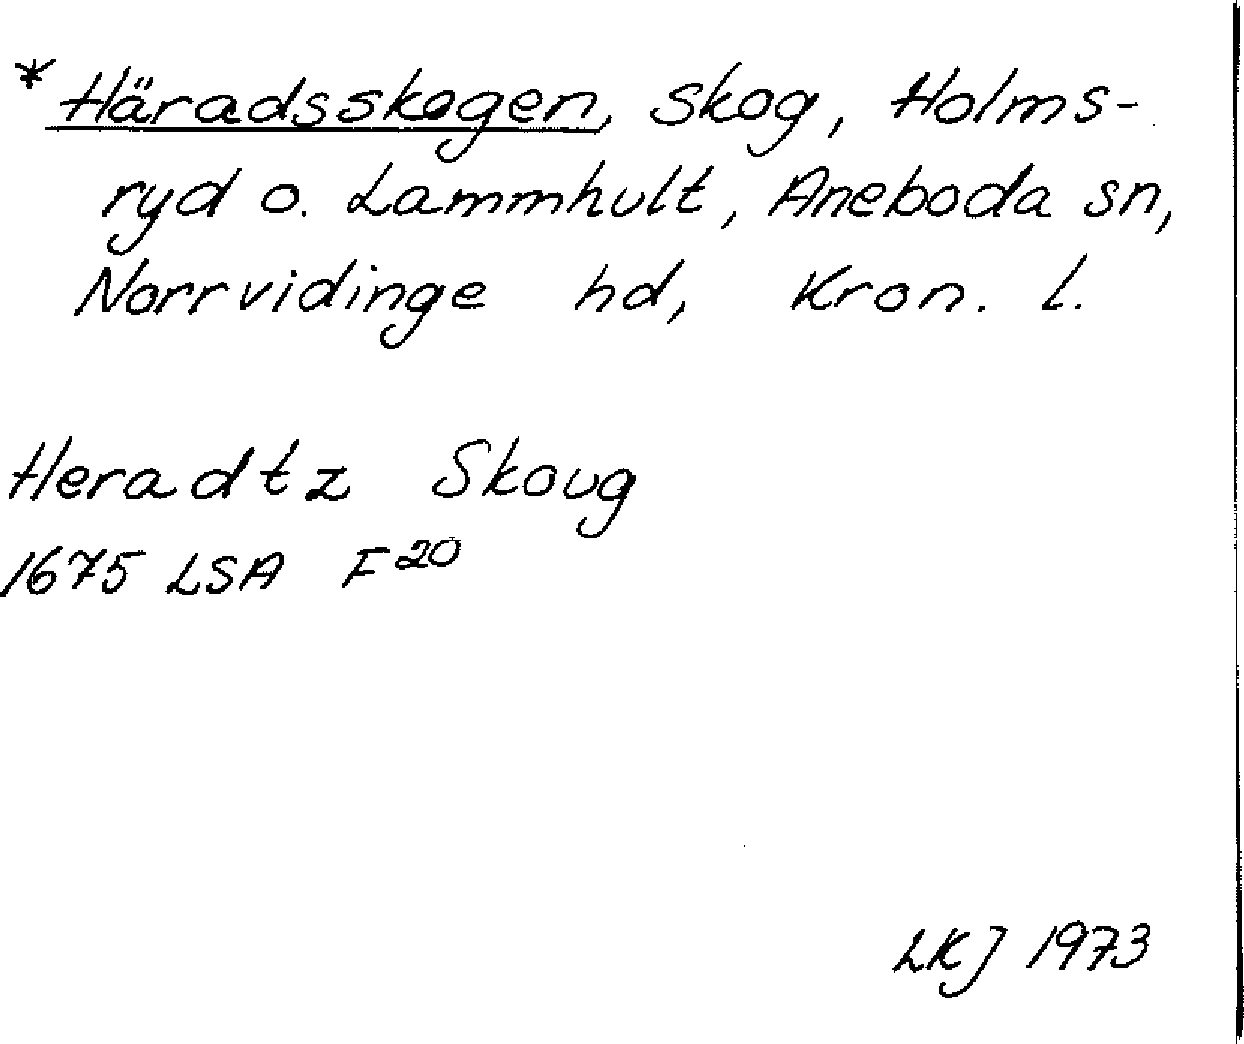 * Häradsskogen, skog, Holms-
ryd o. Lammhult, Aneboda sn,
Norrvidinge hd, Kron. l.
Heradtz Skoug
1675 LSA F20
LKJ 1973